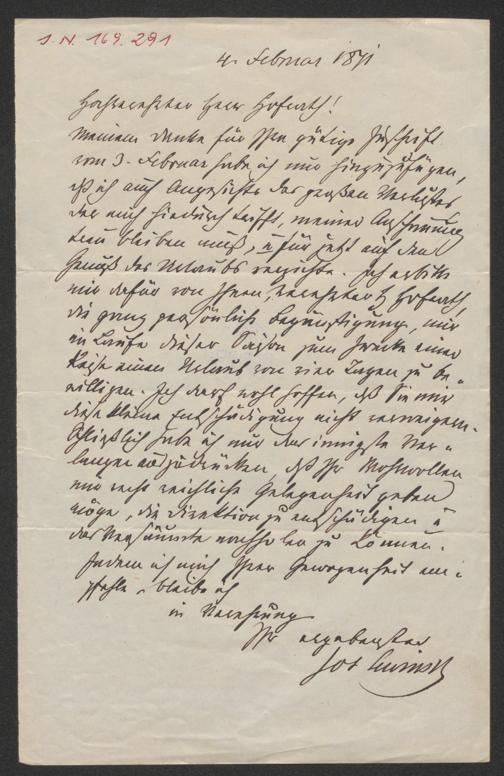 J.N. 169.291
4. Februar 1871
Hochverehrter Herr Hofrath!
Meinem Danke für Ihre gütige Zuschrift
vom 3. Februar habe ich nur hinzuzufügen,
daß ich auch Angesichts des großen Verlustes
der mich hiedurch trifft, meiner Anschauung
treu bleiben muß, u für jetzt auf den
Genuß des Urlaubs verzichte. Ich erbitte
mir dafür von Ihnen, verehrter H Hofrath,
die ganz persönliche Begünstigung, mir
im Laufe dieser Saison zum Zwecke einer
Reise einen Urlaub von vier Tagen zu be-
willigen. Ich darf wohl hoffen, daß Sie mir
diese kleine Entschädigung nicht verweigern.
Schließlich habe ich nur das innigste Ver-
langen auszudrücken daß Ihr Wohlwollen
mir recht reichliche Gelegenheit geben
möge, die Direktion zu entschädigen u
das Versäumte nachholen zu können.
Indem ich mich Ihrer Gewogenheit em-
pfehle, bleibe ich
in Verehrung
Ihr ergebenster
Jos Lewinsky